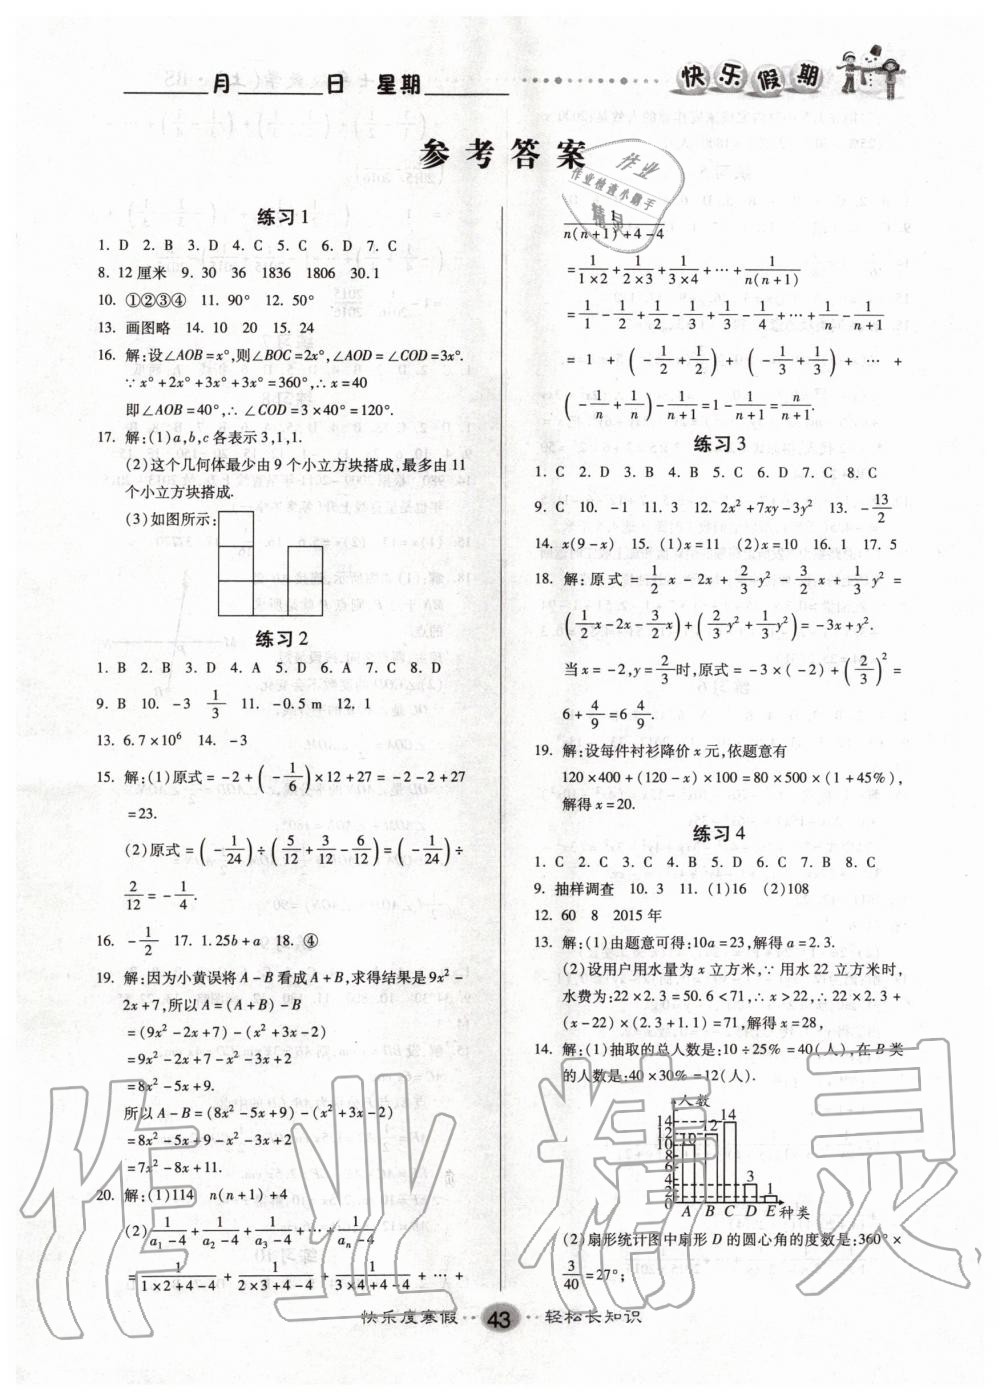 ____月____日 星期____
快乐假期
参考答案
作业
作业检查小助手
精灵
练习1
1. D 2. B 3. D 4. C 5. C 6. D 7. C
8. 12厘米 9. 30 36 1836 1806 30.1
10. ①②③④ 11. 90° 12. 50°
13. 画图略 14. 10 20 15. 24
16. 解:设∠AOB=x°,则∠BOC=2x°,∠AOD=∠COD=3x°.
∵x°+2x°+3x°+3x°=360°,∴x=40
即∠AOB=40°,∴∠COD=3×40°=120°.
17. 解:(1)a,b,c各表示3,1,1.
(2)这个几何体最少由9个小立方块搭成,最多由11
个小立方块搭成.
(3)如图所示:
练习2
1. B 2. B 3. D 4. A 5. D 6. A 7. C 8. D
9. B 10. -3 1/3 11. -0.5 m 12. 1
13. 6.7×10⁶ 14. -3
15. 解:(1)原式=-2+(-1/6)×12+27=-2-2+27
=23.
(2)原式=(-1/24)÷(5/12+3/12-6/12)=(-1/24)÷
2/12=-1/4.
16. -1/2 17. 1.25b+a 18. ④
19. 解:因为小黄误将A-B看成A+B,求得结果是9x²-
2x+7,所以A=(A+B)-B
=(9x²-2x+7)-(x²+3x-2)
=9x²-2x+7-x²-3x+2
=8x²-5x+9.
所以A-B=(8x²-5x+9)-(x²+3x-2)
=8x²-5x+9-x²-3x+2
=7x²-8x+11.
20. 解:(1)114 n(n+1)+4
(2)1/(a₁-4)+1/(a₂-4)+1/(a₃-4)+…+1/(aₙ-4)
=1/(1×2+4-4)+1/(2×3+4-4)+1/(3×4+4-4)+…+
1/(n(n+1)+4-4)
=1/(1×2)+1/(2×3)+1/(3×4)+…+1/(n(n+1))
=1/1-1/2+1/2-1/3+1/3-1/4+…+1/n-1/(n+1)
=1+(-1/2+1/2)+(-1/3+1/3)+…+
(-1/n+1/n)-1/(n+1)=1-1/(n+1)=n/(n+1).
练习3
1. C 2. D 3. B 4. B 5. C 6. D 7. C 8. C
9. C 10. -1 11. 3 12. 2x²+7xy-3y² 13. -13/2
14. x(9-x) 15. (1)x=11 (2)x=10 16. 1 17. 5
18. 解:原式=1/2x-2x+2/3y²-3/2x+1/3y²=
(1/2x-2x-3/2x)+(2/3y²+1/3y²)=-3x+y².
当x=-2,y=2/3时,原式=-3×(-2)+(2/3)²=
6+4/9=6 4/9.
19. 解:设每件衬衫降价x元,依题意有
120×400+(120-x)×100=80×500×(1+45%),
解得x=20.
练习4
1. C 2. C 3. C 4. B 5. D 6. C 7. B 8. C
9. 抽样调查 10. 3 11. (1)16 (2)108
12. 60 8 2015年
13. 解:(1)由题意可得:10a=23,解得a=2.3.
(2)设用户用水量为x立方米,∵用水22立方米时,
水费为:22×2.3=50.6<71,∴x>22,∴22×2.3+
(x-22)×(2.3+1.1)=71,解得x=28,
14. 解:(1)抽取的总人数是:10÷25%=40(人),在B类
的人数是:40×30%=12(人).
人数
14
12
10
8
6
4
2
10 12 14 3 1
A B C D E 种类
(2)扇形统计图中扇形D的圆心角的度数是:360°×
3/40=27°;
作业精灵
快乐度寒假··43··轻松长知识